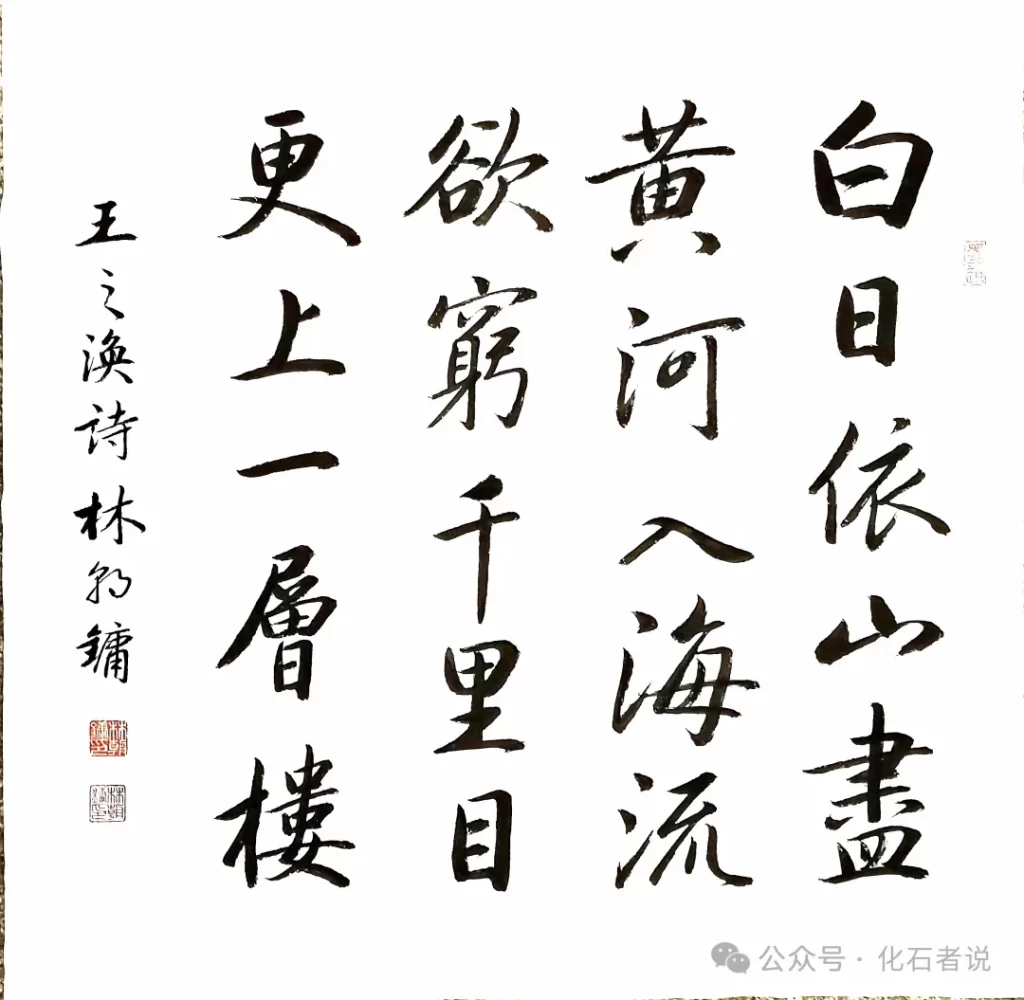 白日依山盡
黄河入海流
欲窮千里目
更上一層樓
王之渙詩林朝鏞
公众号·化石者说